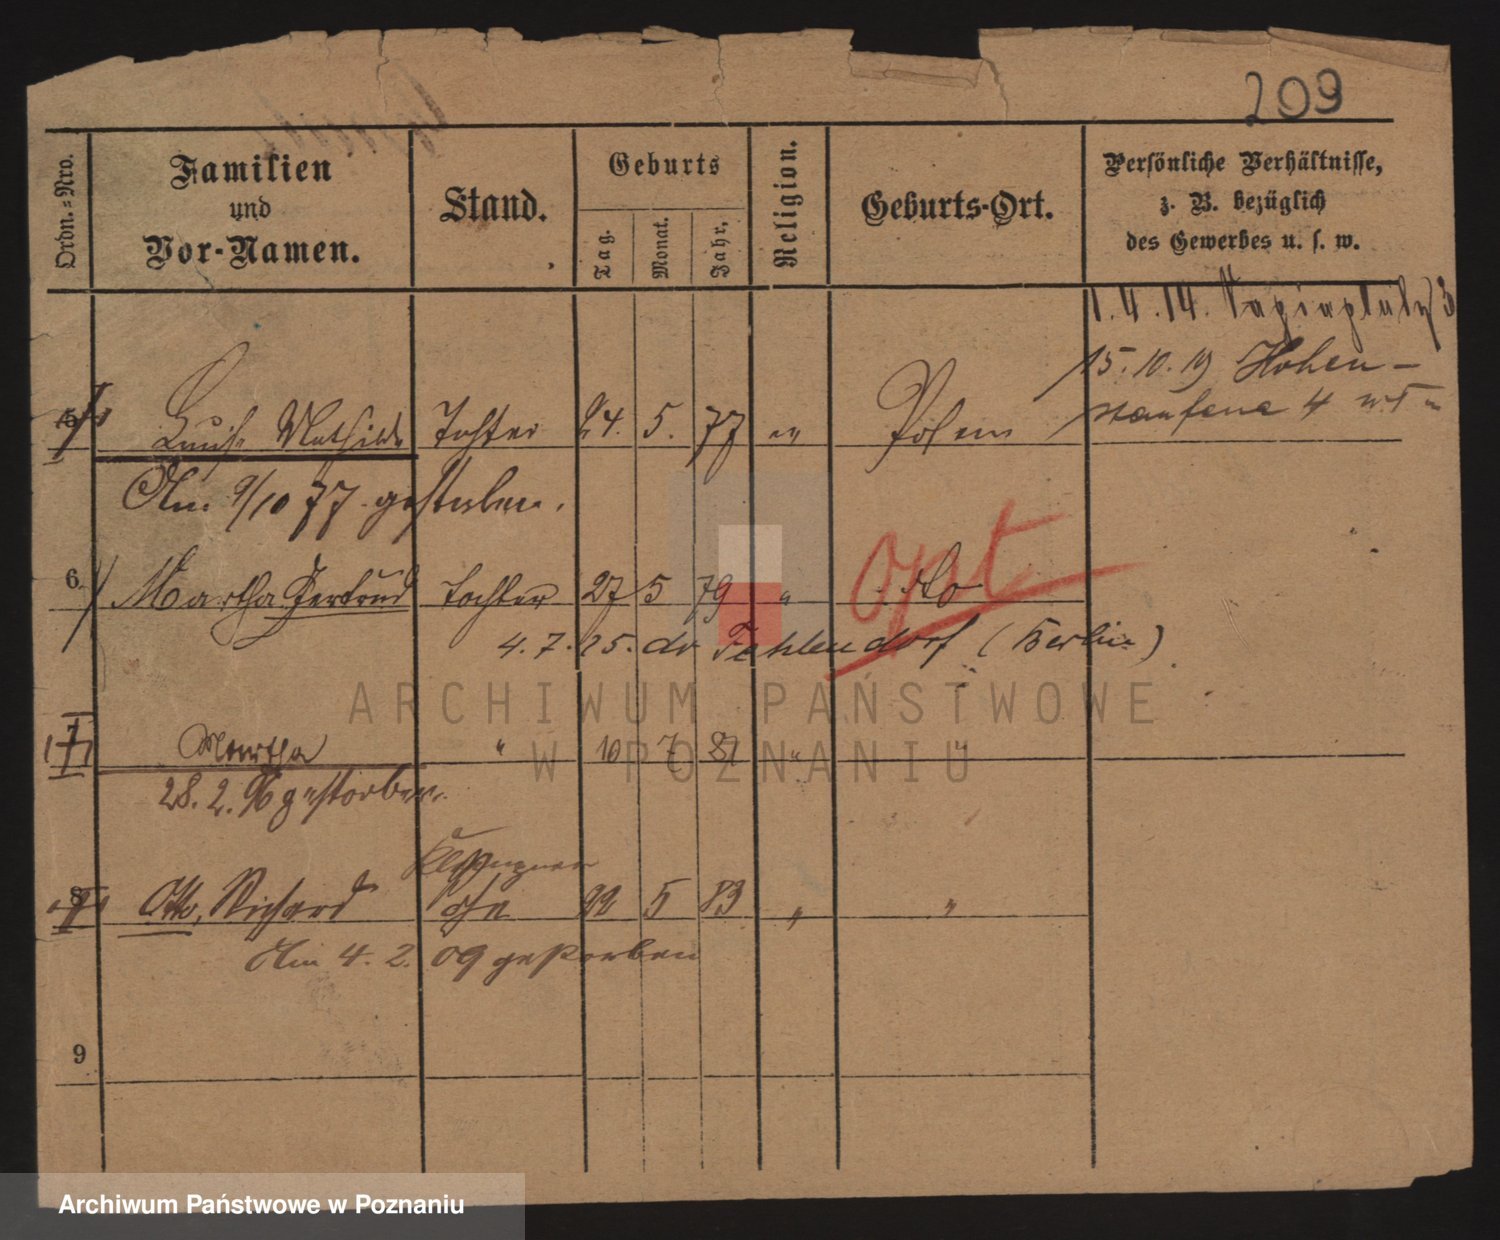 209
Ordn.=Nro.
Familien
und
Vor-Namen.
Stand.
Geburts
Tag.
Monat.
Jahr.
Religion.
Geburts-Ort.
Persönliche Verhältnisse,
z. B. bezüglich
des Gewerbes u. s. w.
1.4.14. 3
15.10.19 Hohen-
staufens 4
5 Luise Mathilde Tochter 24. 5. 77 " Posen
Am 9/10 77 gestorben.
6. Martha Gertrud Tochter 27 5 79 " do
Opt
4.7.25. (Berlin)
7 Martha " 10 7 81 " "
28.2.96 gestorben.
8 Otto, Richard 22 5 83 " "
Am 4.2.09 gestorben
9
ARCHIWUM PAŃSTWOWE
W POZNANIU
Archiwum Państwowe w Poznaniu